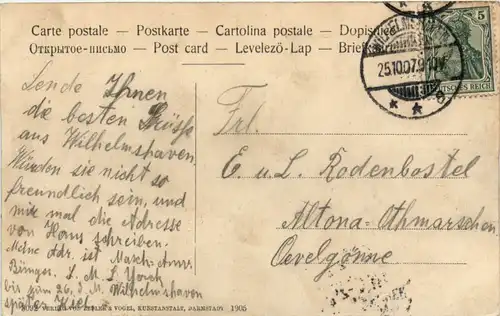 Carte postale – Postkarte – Cartolina postale – Dopisnice
Открытое-письмо – Post card – Levelező-Lap – Briefkaart
WILHELMSHAVEN
25.10.07. 9-10V.
5
DEUTSCHES REICH
Sende Ihnen
die besten Grüße
aus Wilhelmshaven
Würden sie nicht so
freundlich sein, und
mir mal die Adresse
von Hans schreiben.
Meine Adr. ist Masch.-Anw.
Bünger. S. M. S. Yorck
bis zum 26. S. M. Wilhelmshaven
später Kiel.
Frl.
E. u. L. Rodenbostel
Altona-Othmarschen
Oevelgönne
VERLAG VON ZEDLER & VOGEL, KUNSTANSTALT, DARMSTADT 1905